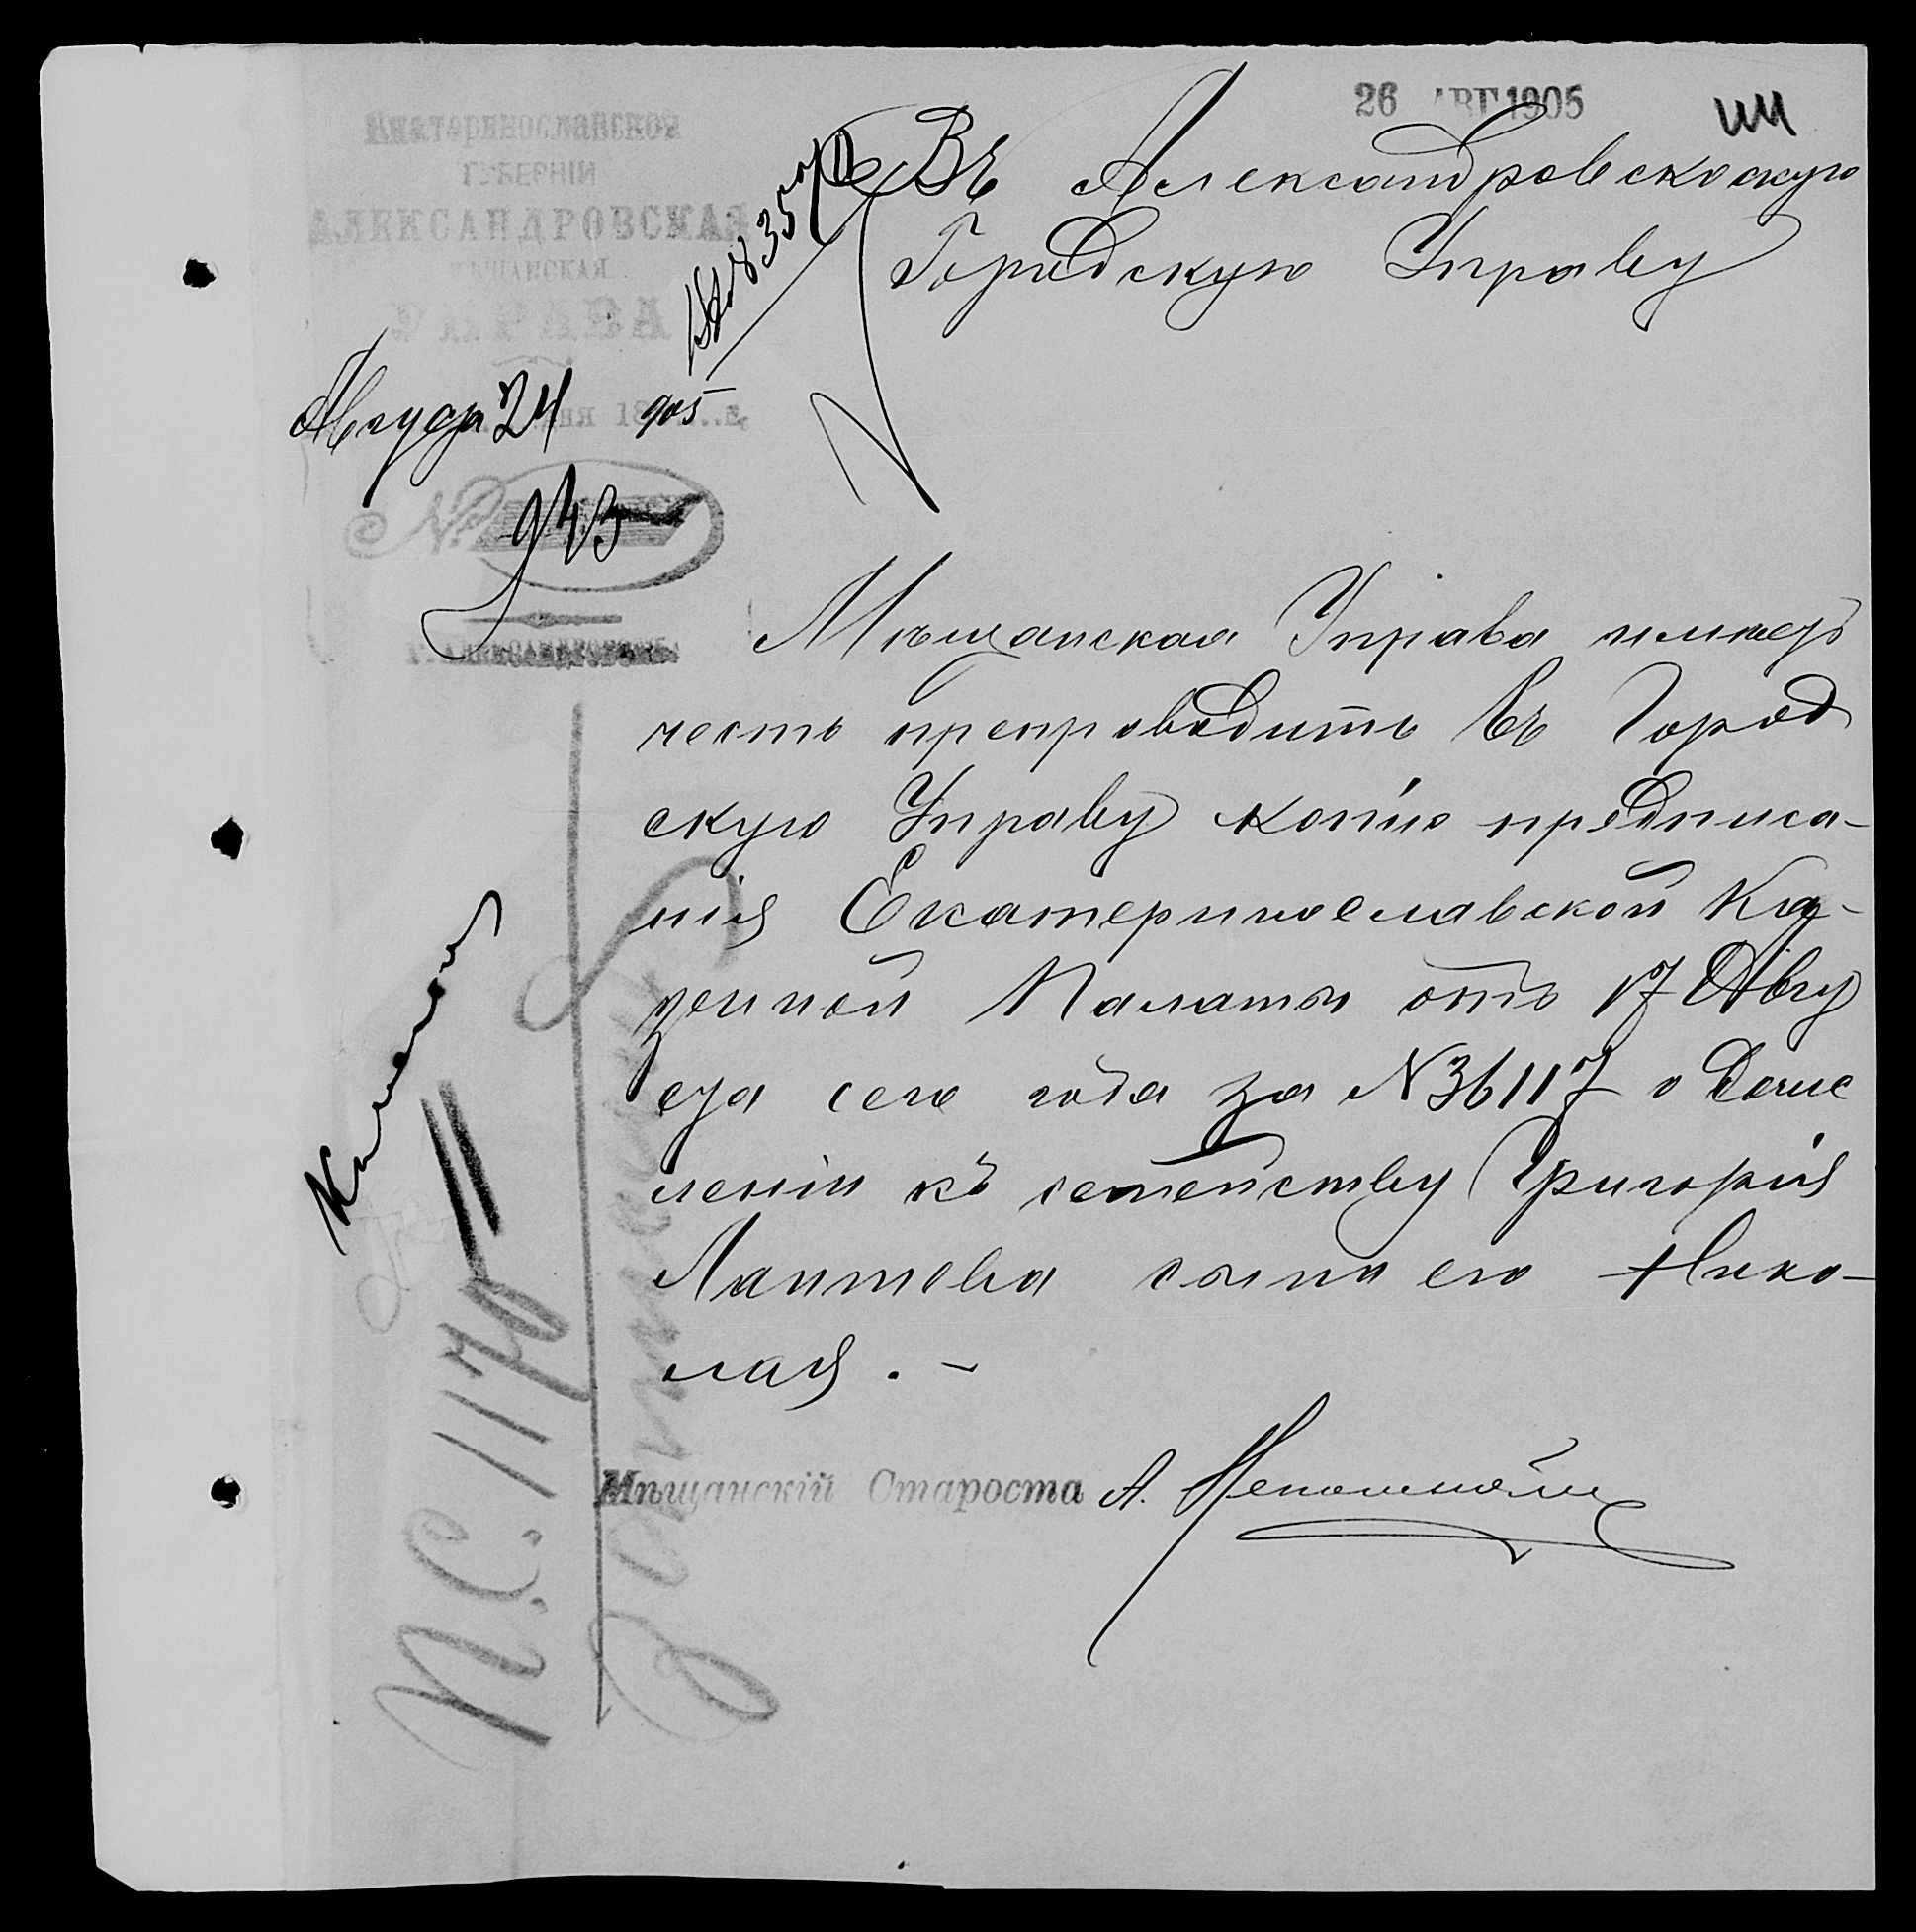 26 АВГ 1905
Екатеринославской
ГУБЕРНІИ
АЛЕКСАНДРОВСКАЯ
МѢЩАНСКАЯ
УПРАВА
Августа 24 дня 1905 г.
№ 943
Г. АЛЕКСАНДРОВСКЪ
Въ Александровскоскую
Городскую Управу
Мѣщанская Управа имѣетъ
честь препроводить въ Город
скую Управу копію предписа-
нія Екатеринославской Ка-
зенной Палаты отъ 17 Авгу
ста сего года за N 36117 о дочис
леніи къ семейству Григорія
Лаптева сына его Нико-
лая. -
Мѣщанскій Староста А.
П.С. 1170